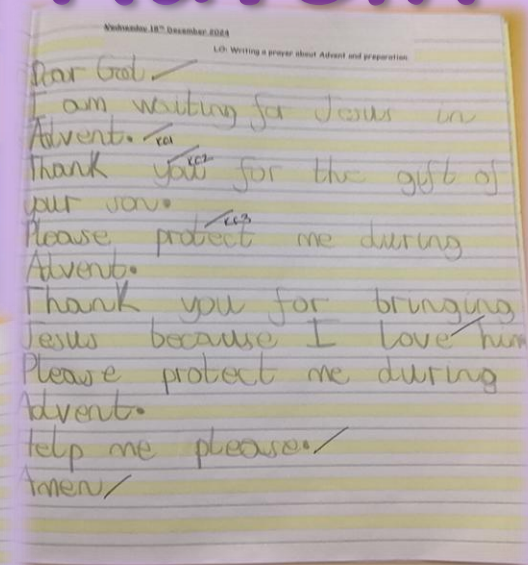 Wednesday 18th December 2024
LCh Writing a prayer about Advent and preparation
Dear God
I am waiting for Jesus in
Advent. KC1
Thank you KC2 for the gift of
your son.
Please protect KC3 me during
Advent.
Thank you for bringing
Jesus because I love him
Please protect me during
Advent.
Help me please.
Amen